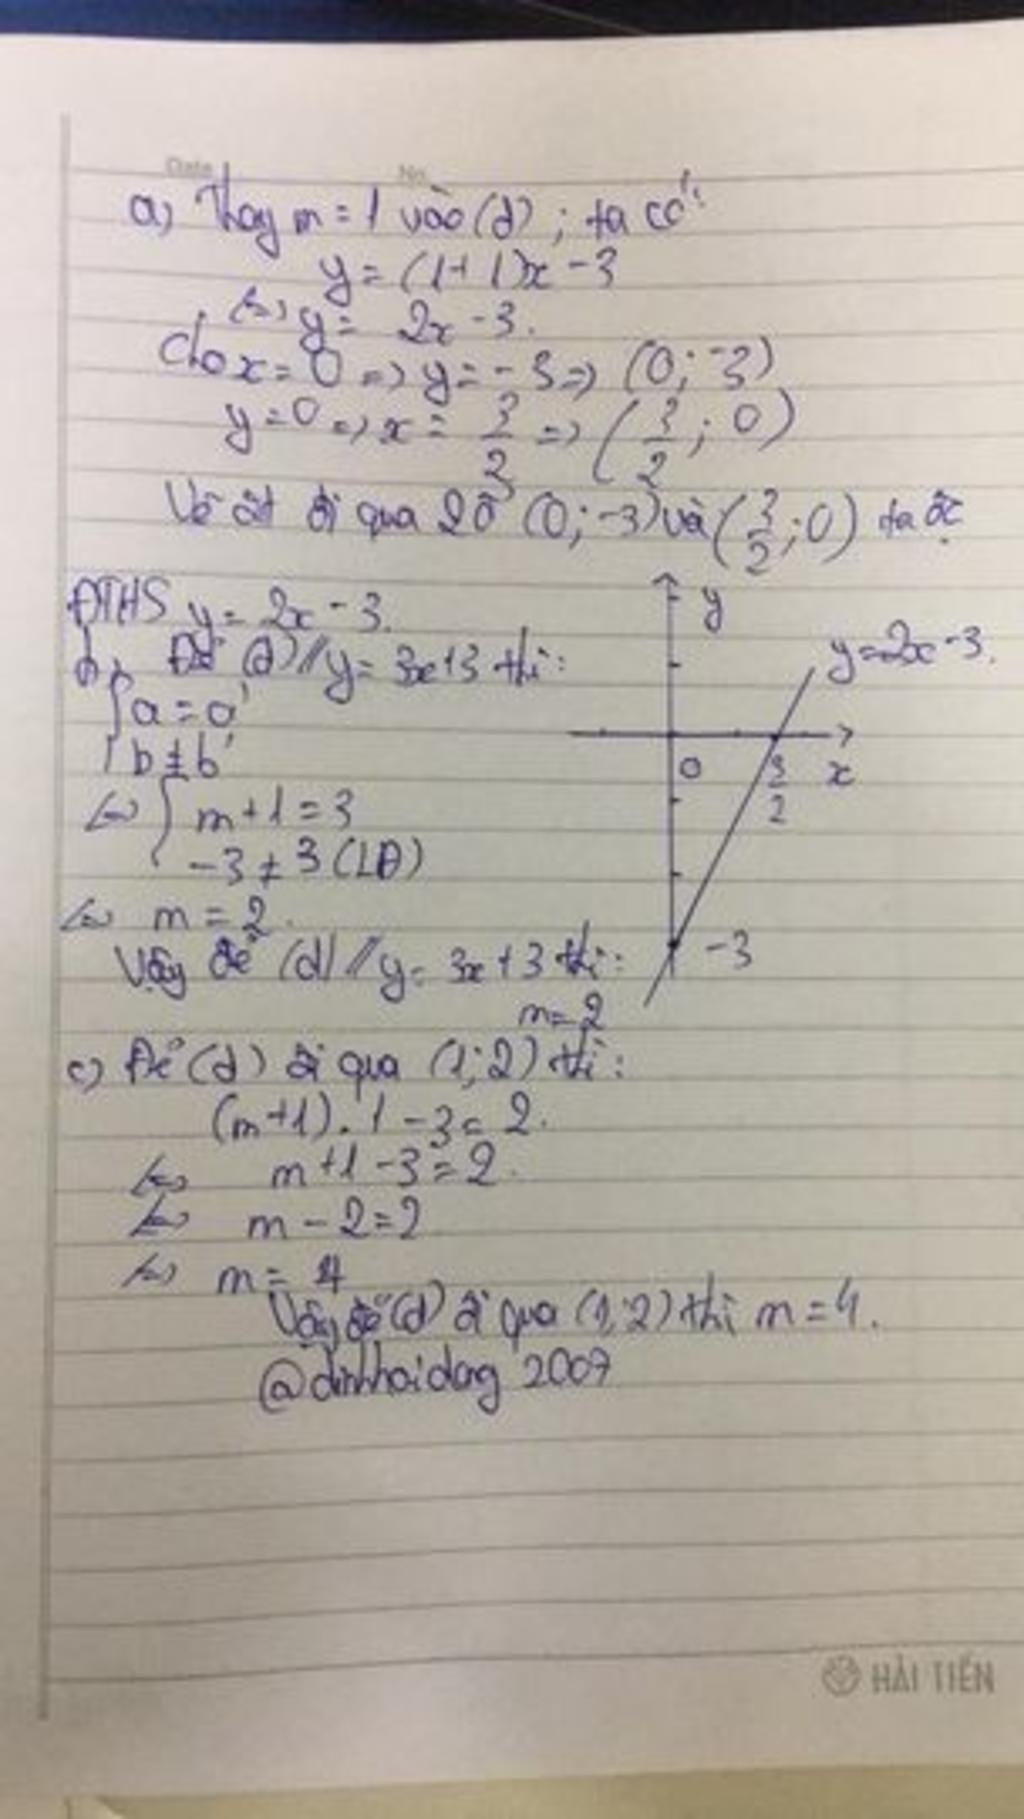 Date No.
a) Thay m = 1 vào (d) ; ta có:
y = (1+1)x - 3
(=) y = 2x - 3.
Cho x = 0 => y = -3 => (0; -3)
y = 0 => x = 3/2 => (3/2 ; 0)
Vẽ đt đi qua 2đ (0; -3) và (3/2 ; 0) ta đc
ĐTHS y = 2x - 3.
b, Để (d) // y = 3x+3 thì:
{ a = a'
b ≠ b'
<=> { m+1 = 3
-3 ≠ 3 (LĐ)
<=> m = 2.
Vậy để (d) // y = 3x+3 thì:
m = 2
y
y = 2x - 3.
0
3/2
x
-3
c) Để (d) đi qua (1; 2) thì:
(m+1).1 - 3 = 2.
<=> m+1-3 = 2.
<=> m - 2 = 2
<=> m = 4
Vậy để (d) đi qua (1; 2) thì m = 4.
@dinhhaidang 2007
HẢI TIẾN